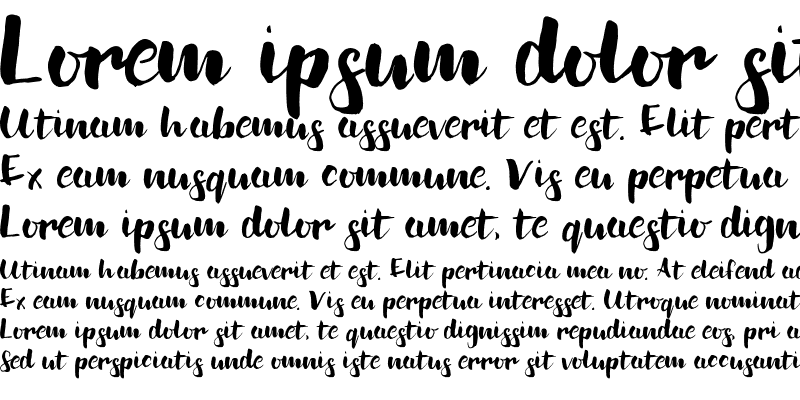 Lorem ipsum dolor sit
Utinam habemus assueverit et est. Elit pert
Ex eam nusquam commune. Vis eu perpetua
Lorem ipsum dolor sit amet, te quaestio dign
Utinam habemus assueverit et est. Elit pertinacia mea no. At eleifend
Ex eam nusquam commune. Vis eu perpetua interesset. Utroque nominat
Lorem ipsum dolor sit amet, te quaestio dignissim repudiandae eos, pri a
Sed ut perspiciatis unde omnis iste natus error sit voluptatem accusanti